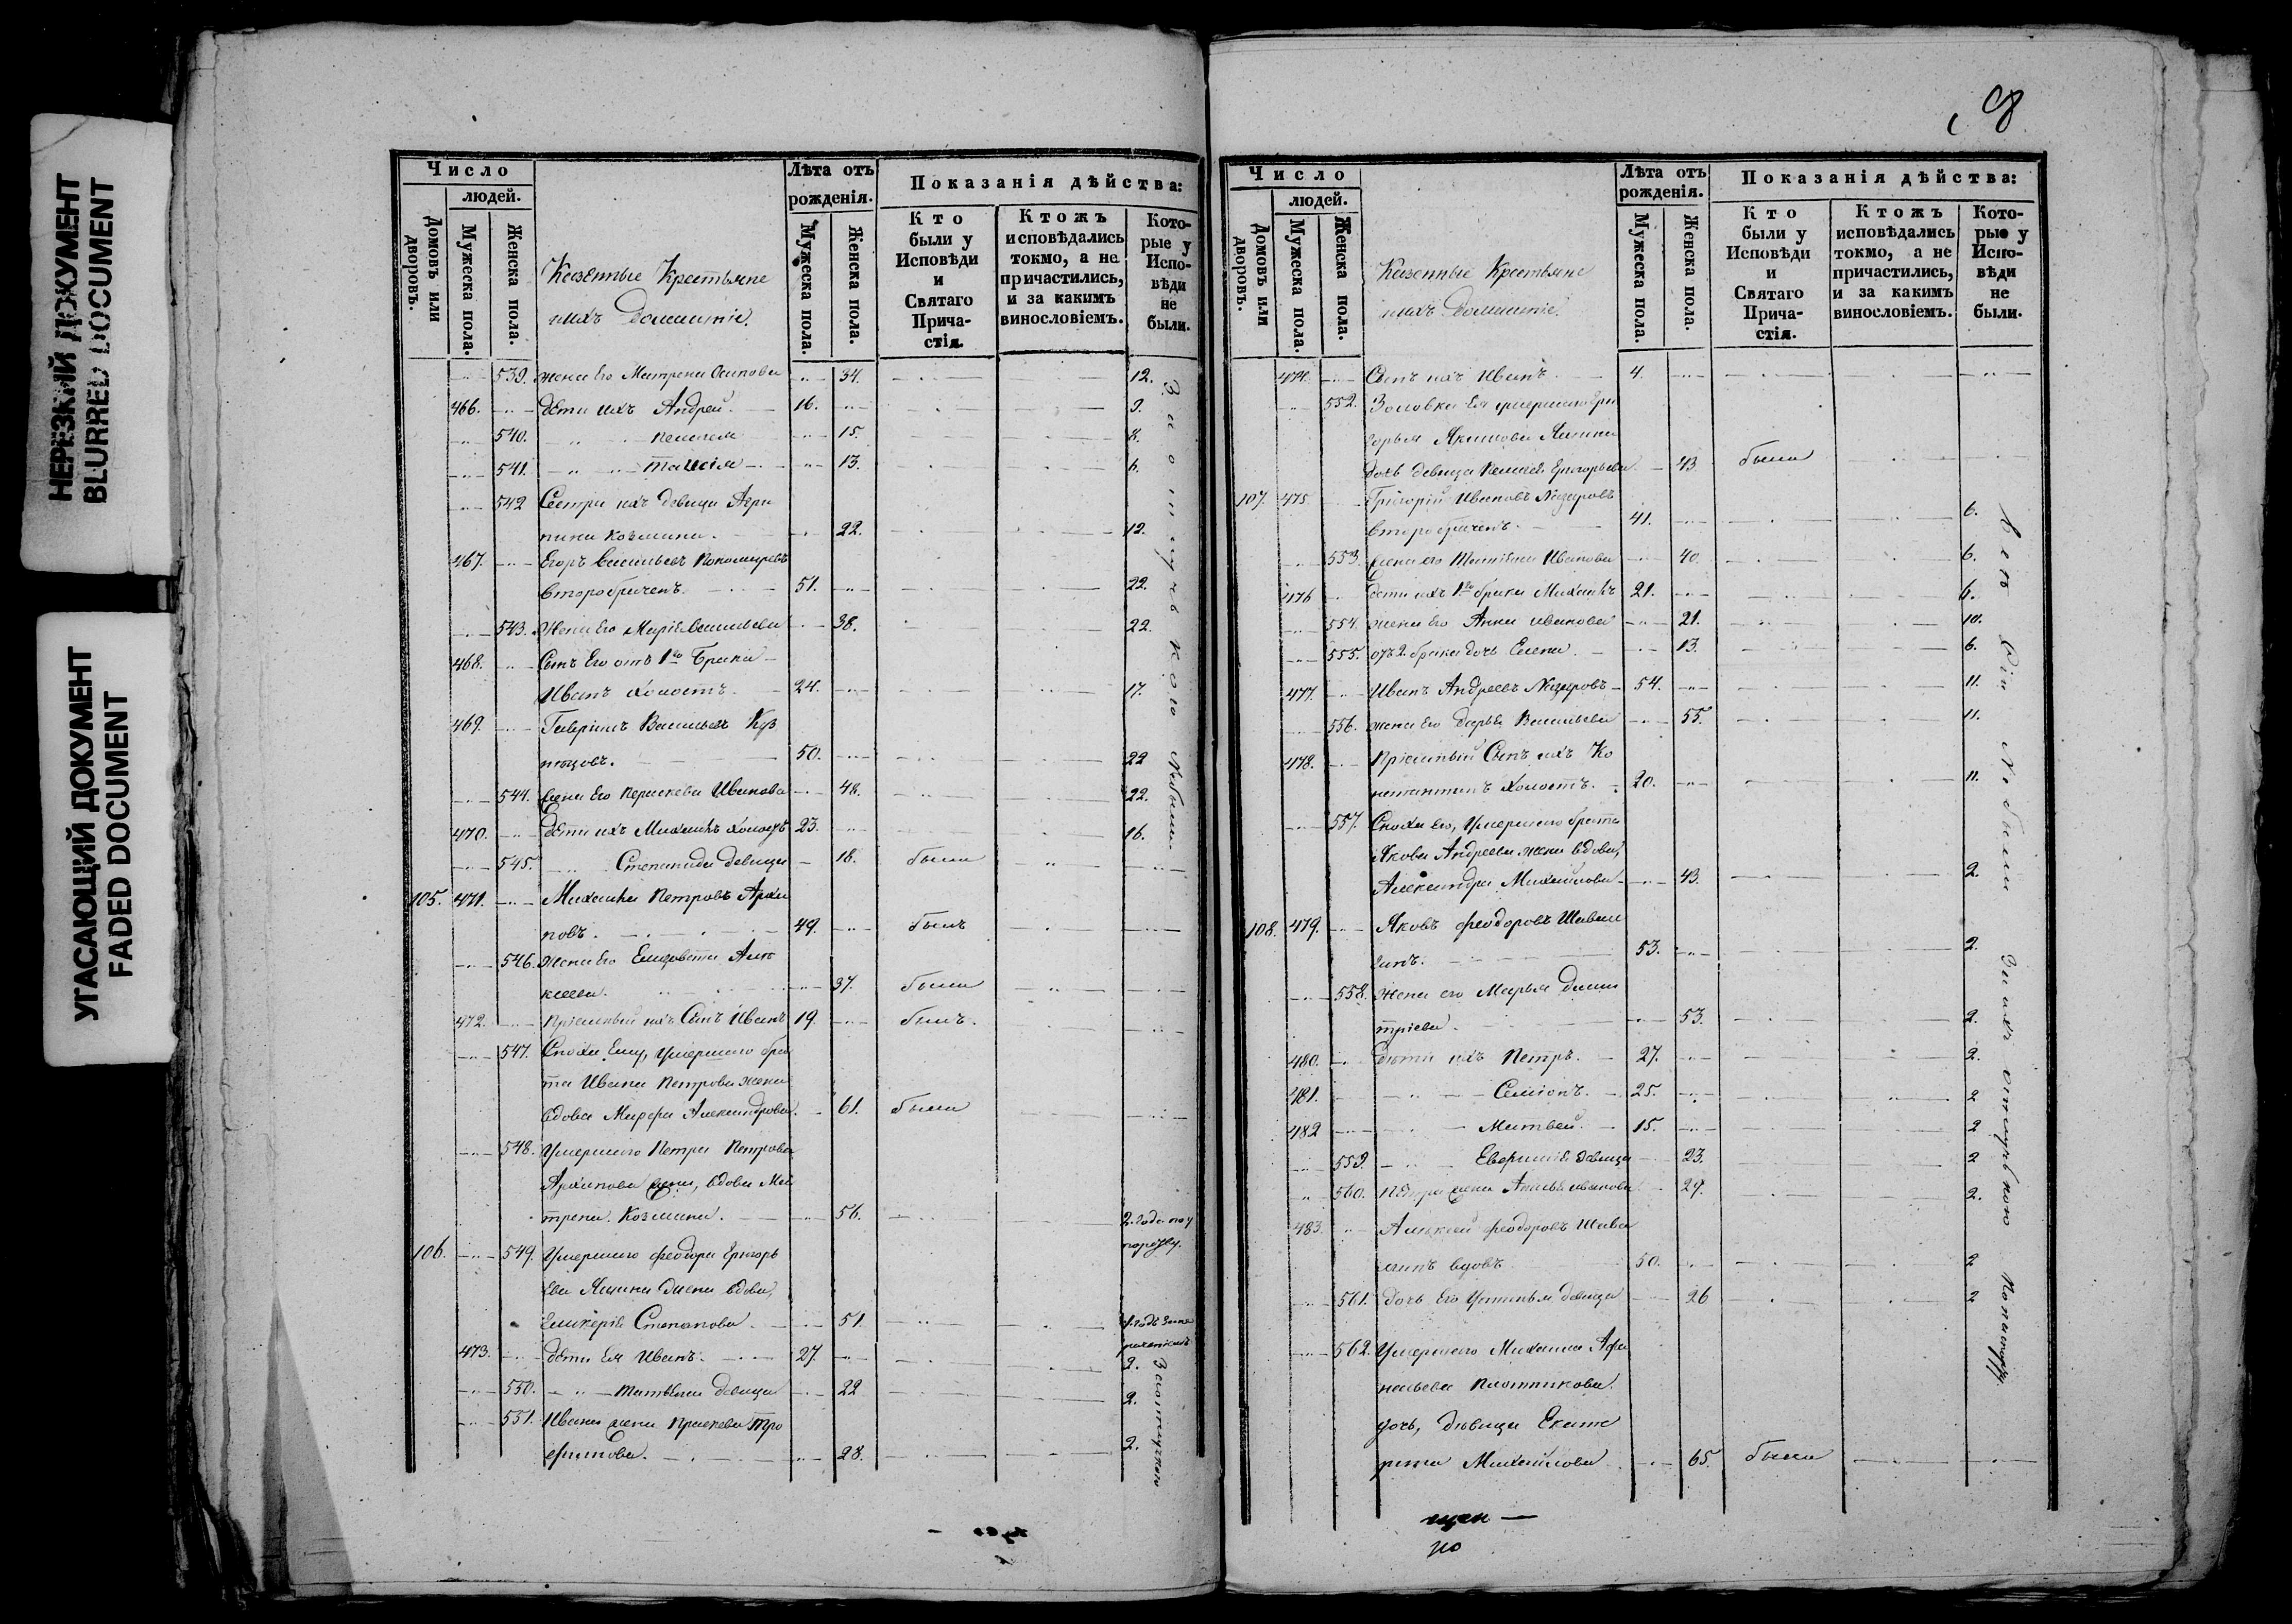 НЕРЕЗКИЙ ДОКУМЕНТ
BLURRED DOCUMENT
УГАСАЮЩИЙ ДОКУМЕНТ
FADED DOCUMENT
Число
людей.
Домовъ или дворовъ.
Мужеска пола.
Женска пола.
Казенные Крестьяне
ихъ домашніе.
Лѣта отъ рожденія.
Мужеска пола.
Женска пола.
Показанія дѣйства:
Кто были у Исповѣди и Святаго Причастія.
Ктожъ исповѣдались токмо, а не причастились, и за какимъ винословіемъ.
Которые у Исповѣди не были.
539. жена Его Матрена Осипова 34. 12.
466. дѣти ихъ Андрей 16. 9.
540. Пелагея 15. 8.
541. Таисія 13. 6.
542 Сестра ихъ девица Агри
пина Козмина. 22. 12.
467. Егоръ Васильевъ Пономаревъ
второбраченъ. 51. 22.
543. Жена Его Марія Васильева 38. 22.
468. Сынъ Его отъ 1го Брака
Иванъ холостъ. 24. 17.
469. Гаврiилъ Васильевъ Куз
нецовъ. 50. 22
544. жена Его Параскева Иванова 48. 22.
470. дѣти ихъ Михаилъ холостъ 23. 16.
545. Степанида девица 18. была
105. 471. Михаилъ Петровъ Архи
повъ. 49. былъ
546. Жена Его Елизавета Але
ксеева. 37. была
472. Пріемный ихъ Сынъ Иванъ 19. былъ.
547. Сноха Ему, умершаго бра
та Ивана Петрова жена
вдова Марфа Александрова. 61. была
548. Умершаго Петра Петрова
Архипова жена, вдова Ма
трена Козмина. 56. 2. года по
106. 549. Умершаго Феодора Григорь
ева Яшина жена вдова,
Гликерія Степанова 51. 1. годъ
473. дѣти Ея Иванъ. 27. 2.
550. Татьяна девица 22 2.
551. Ивана жена Праскева Тро
фимова. 28. 2.
За отлучкою Небыли
За отлучкою
Число
людей.
Домовъ или дворовъ.
Мужеска пола.
Женска пола.
Казенные Крестьяне
ихъ домашніе.
Лѣта отъ рожденія.
Мужеска пола.
Женска пола.
Показанія дѣйства:
Кто были у Исповѣди и Святаго Причастія.
Ктожъ исповѣдались токмо, а не причастились, и за какимъ винословіемъ.
Которые у Исповѣди не были.
474. Сынъ ихъ Иванъ 4.
552. Золовка Ея умершаго Гри
горья Акимова Яшина
дочь девица Пелагея Григорьева 43 была
107. 475 Григорій Ивановъ Назаровъ
второбраченъ. 41. 6.
553. жена его Татіяна Иванова 40. 6.
476 дѣти ихъ 1го брака Михаилъ 21. 6.
554. жена Его Анна Иванова 21. 10.
555. отъ 2. брака дочь Елена. 13. 6.
477. Иванъ Андреевъ Назаровъ 54. 11.
556. жена Его Дарья Васильева 55. 11.
478. Пріемный Сынъ ихъ Ко
нстантинъ холостъ. 20. 11.
557. Сноха Его, умершаго брата
Якова Андреева жена вдова,
Александра Михайлова 43. 2.
108. 479. Яковъ Феодоровъ Шава
гинъ. 53. 2.
558. Жена его Марья Дими
тріева. 53. 2.
480. Дѣти ихъ Петръ. 27. 2.
481. Семіонъ. 25. 2
482 Матвей. 15. 2
559. девица 23. 2
560. Петра жена Анисья Иванова 24. 2.
483 Алексей Феодоровъ Шава
гинъ вдовъ 50. 2
561. Дочь Его Устинья девица 26 2
562. Умершаго Михаила Афа
насьева Плотникова
дочь, девица Екате
рина Михайлова 65. была
Всѣ Сіи Не были За ихъ отлучкою